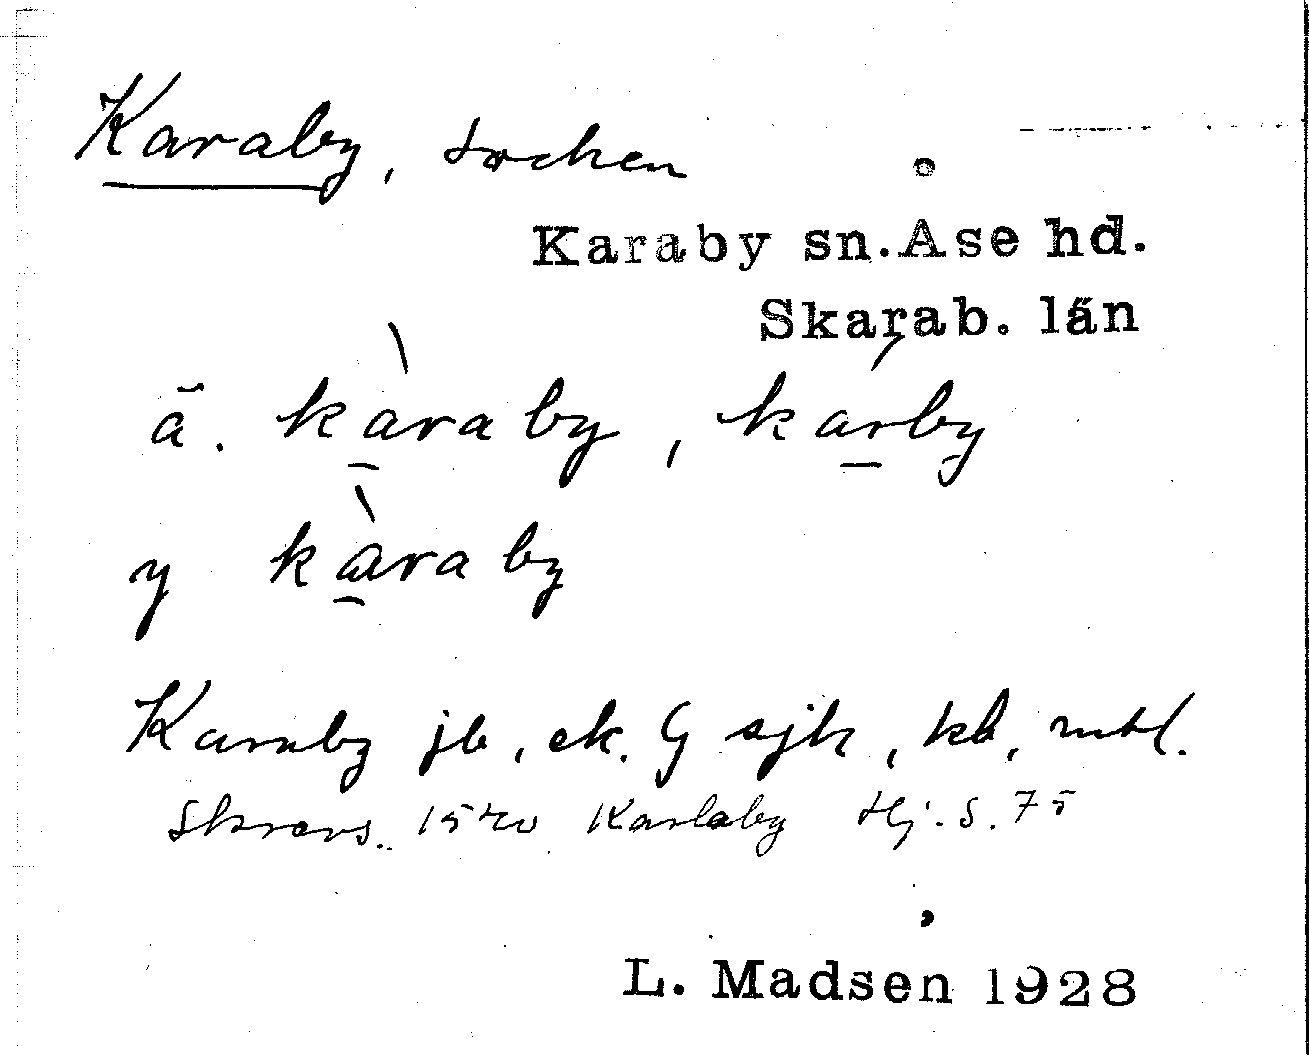 Karaby, socken
Karaby sn. Åse hd.
Skarab. län
ä. kàraby, kárby
y kàraby
Karaby jb, ek. G sjk, kb, mtl.
Skravs. 1540 Karlaby Hj. S. 75
L. Madsen 1928